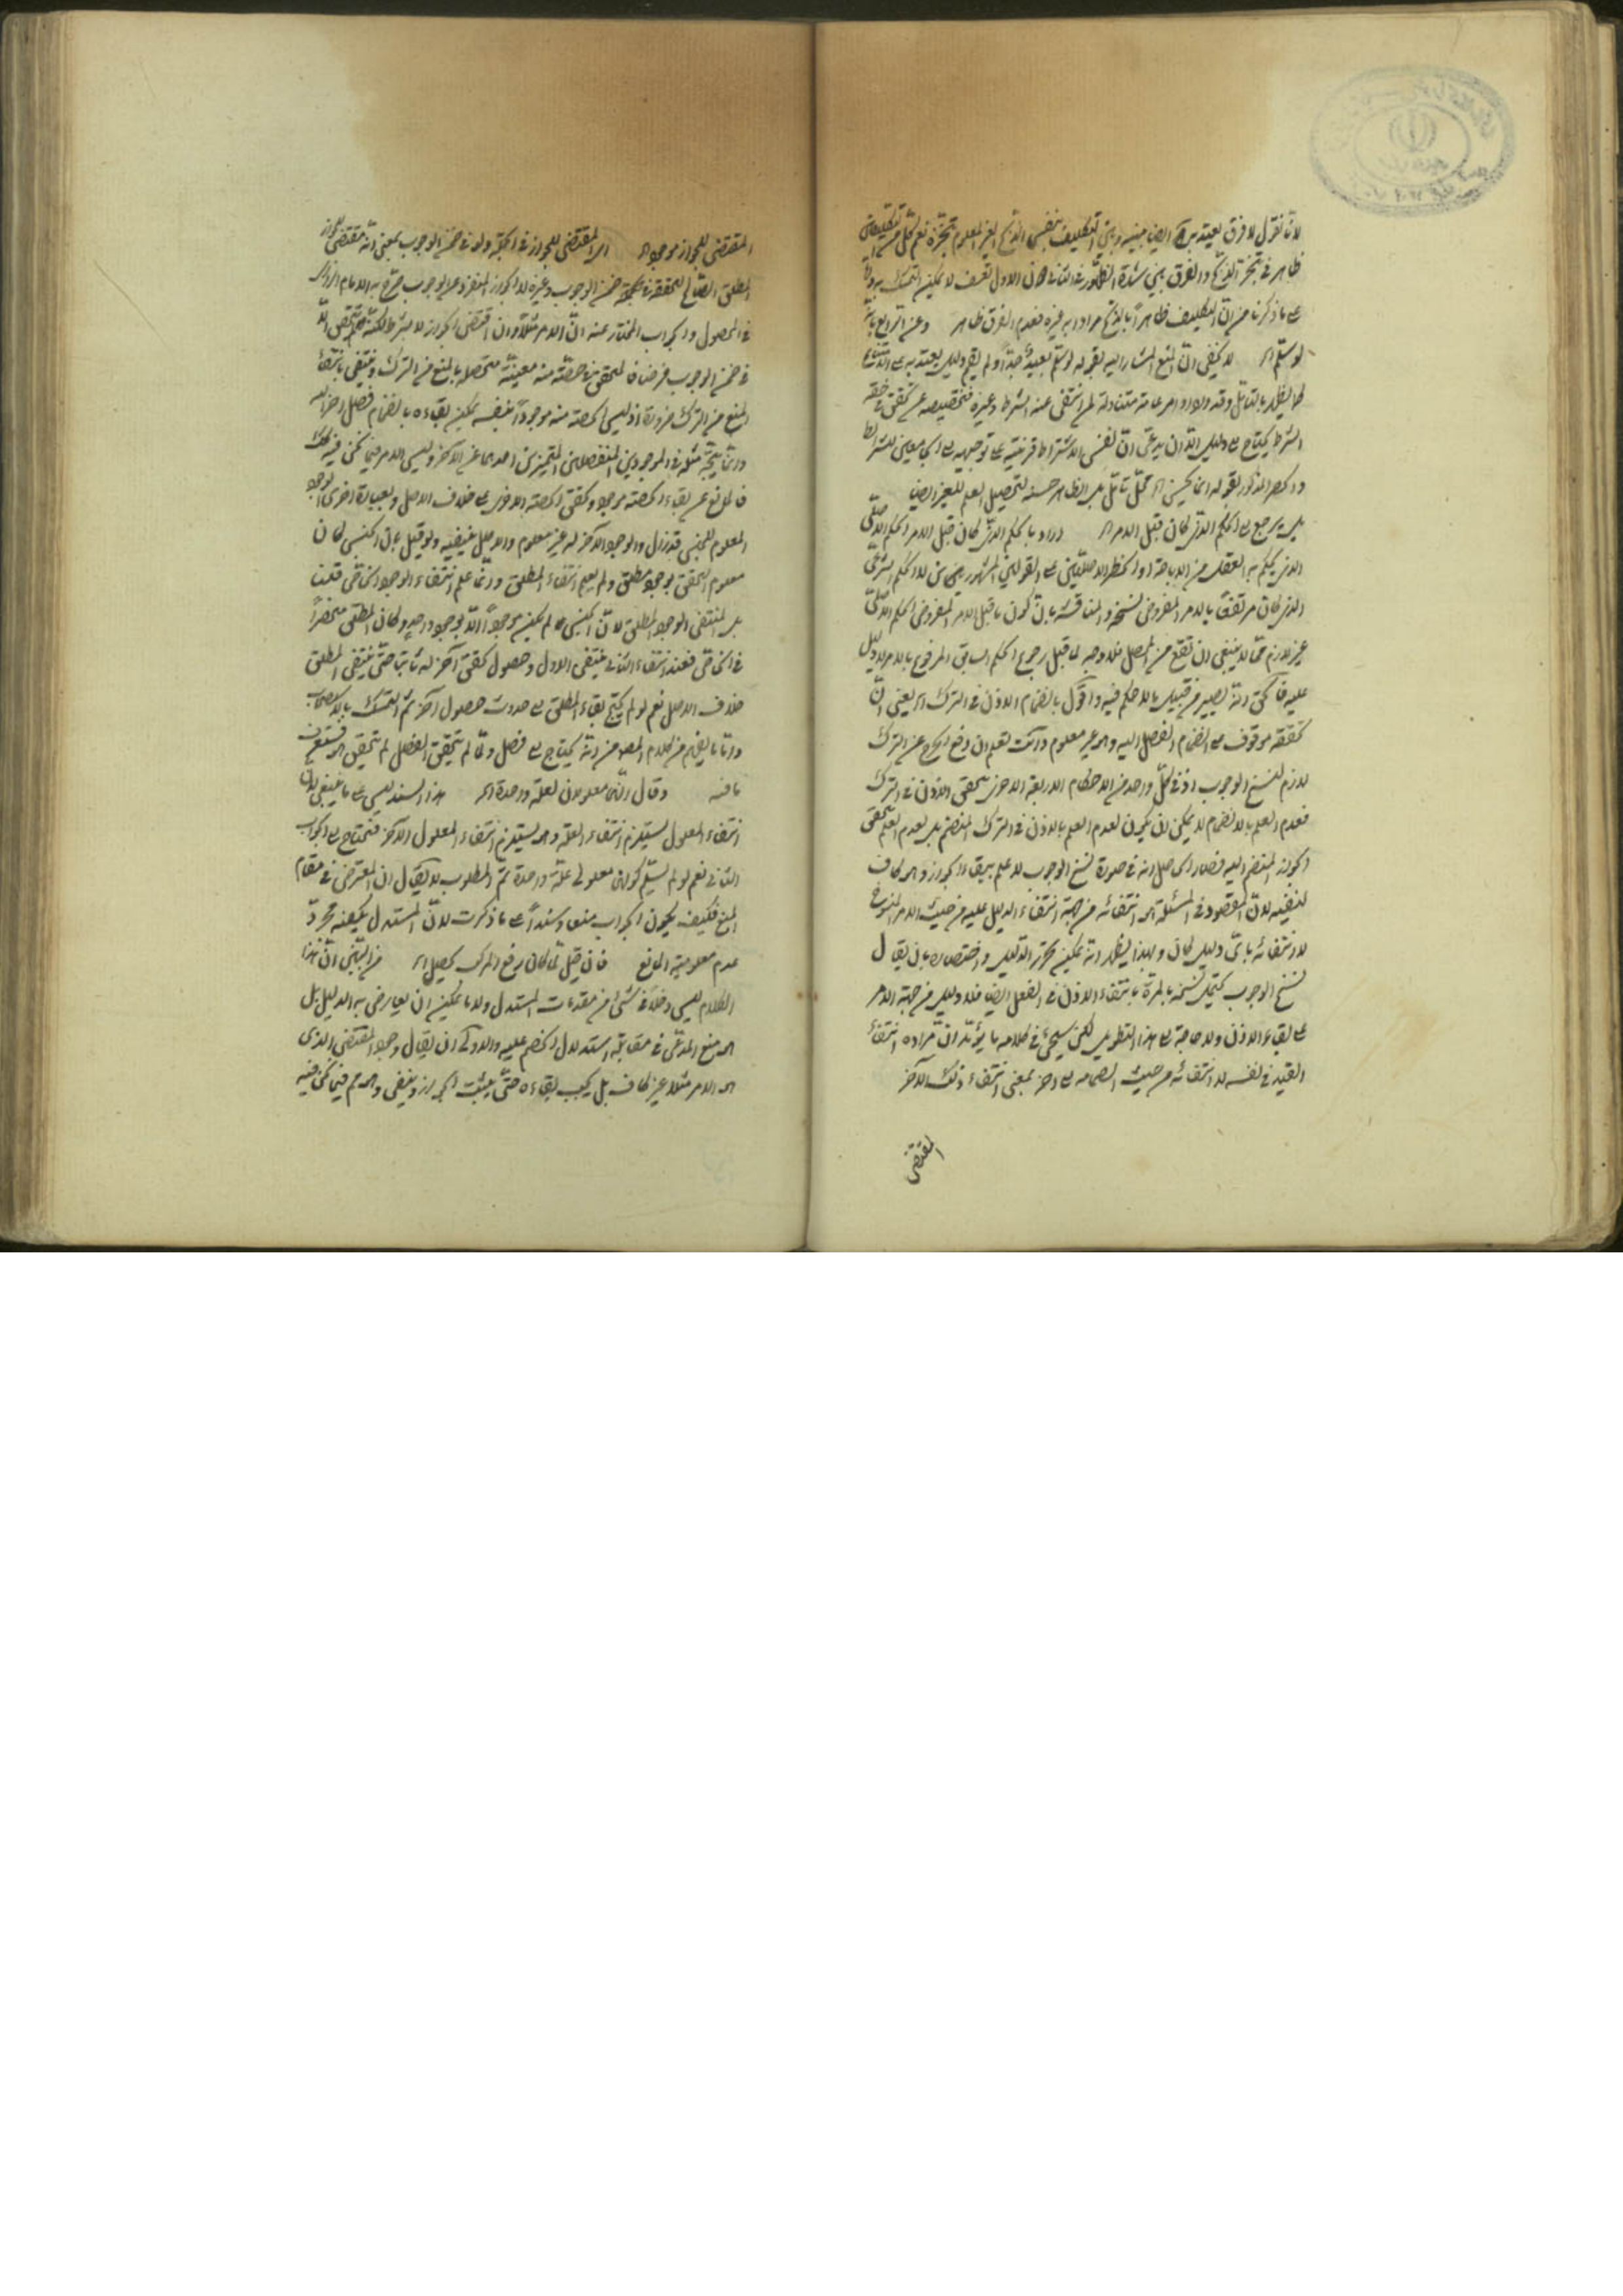 لانا نقول لا فرق يعتد به ايضا بينه وبين التكليف بنفس الذبح الغير المعلوم تنجزه نعم لكل من التكليفين
ظاهر في تنجز الذبح والفرق بينهما شدة الظهور في الثاني دون الاول تعسف لا يمكن التمسك به
على ما ذكرنا من ان التكليف ظاهرا بالذبح مرادا به غيره فعدم الفرق ظاهر وعن الرابع بانه
لو سلم اه لا يخفى ان المنع المشار اليه بقوله لو سلم بعيد جدا ولم يقم دليل يعتد به على امتناع
كما يظهر بالتامل وقد ورد اوامر عامة متناولة لمن انتفى عنه الشرط وغيره فتخصيصه بمن تحقق في حقه
الشرط يحتاج الى دليل الا ان يدعى ان نفس الاشتراط قرينة على توجهه الى الجامعين للشرائط
والحصر المذكور بقوله انما يحسن اه محل تامل بل الظاهر حسنه لتحصيل العلم للغير ايضا
بل يرجع الى الحكم الذي كان قبل الامر اه اراد بالحكم الذي كان قبل الامر الحكم الاصلي
الذي يحكم به العقل من الاباحة او الحظر الاصليين على القولين المشهورين لا الحكم الشرعي
الذي كان مرتفعا بالامر المفروض نسخه والمناقشة بان كون ما قبل الامر المفروض الحكم الاصلي
غير لازم مما لا ينبغي ان تقع من المحصل فلا وجه لما قيل رجوع الحكم السابق المرفوع بالامر لا دليل
عليه فالحق انه يصير من قبيل ما لا حكم فيه واقول بانضمام الاذن في الترك اه يعني ان
تحققه موقوف على انضمام الفصل اليه وهو غير معلوم وانت تعلم ان رفع الحرج عن الترك
لازم لنسخ الوجوب اذ في كل واحد من الاحكام الاربعة الاخرى يتحقق الاذن في الترك
فعدم العلم بالانضمام لا يمكن ان يكون لعدم العلم بالاذن في الترك المنضم بل لعدم العلم بتحقق
الجواز المنضم اليه فصار الحاصل انه في صورة نسخ الوجوب لا علم ببقاء الجواز وهو كاف
لنفيه لان المقصود في المسئلة هو انتفائه من جهة انتفاء الدليل عليه من حيث الامر المنسوخ
لا انتفائه باي دليل كان وبهذا يظهر انه يمكن تحرير الدليل واختصاره بان يقال
نسخ الوجوب يحتمل نسخه بالمرة بانتفاء الاذن في الفعل ايضا فلا دليل من جهة الامر
على بقاء الاذن ولا حاجة الى هذا التطويل لكن سيجئ في كلامه ما يؤيد ان مراده انتفاء
القيد في نفسه لا انتفائه من حيث انضمامه الى اخر بمعنى انتفاء ذلك الاخر
المقتضى
المقتضى للجواز موجود اه اي المقتضى للجواز في الجملة ولو في ضمن الوجوب بمعنى انه مقتضى للجواز
المطلق الصالح لتحققه في ضمن الوجوب وغيره لا الجواز المنفرد عن الوجوب صرح به الامام الرازي
في المحصول والجواب المختار عنه ان الامر مثلا وان اقتضى الجواز لا بشرط لكنه لم يتحقق الا
في ضمن الوجوب فرضا فالمتحقق منه حصته منه معينة متحصلة بالمنع من الترك وينتفي بانتفاء
المنع من الترك ضرورة اذ ليس الحصة منه موجودا بنفسه يمكن بقاءه بانضمام فصل اخر اليه
وانما يتجه مثله في الموجودين المنفصلين المتميزين احدهما عن الاخر وليس الامر فيما نحن فيه كذلك
فالمانع عن بقاء الحصة موجود وتحقق الحصة الاخرى على خلاف الاصل وبعبارة اخرى الوجود
المعلوم للجنس قد زال والوجود الاخر له غير معلوم والاصل ينفيه ولو قيل بان الجنس كان
معلوم التحقق بوجود مطلق ولم يعلم انتفاء المطلق وانما علم انتفاء الوجود الخاص قلنا
بل انتفى الوجود المطلق لان الجنس لما لم يكن موجودا الا بوجود واحد وكان المطلق منحصرا
في الخاص فعند انتفاء الثاني ينتفي الاول وحصول تحقق اخر له ثانيا حتى ينتفي المطلق
خلاف الاصل نعم لو لم يحتج بقاء المطلق الى حدوث حصول اخر تم التمسك بالاستصحاب
واما ما يفهم من كلام المص من انه يحتاج الى فصل ولما لم يتحقق الفصل لم يتحقق هو فستعرف
ما فيه وقال انهما معلولان لعلة واحدة اه هذا السند ليس على ما ينبغي لان
انتفاء المعلول يستلزم انتفاء العلة وهو يستلزم انتفاء المعلول الاخر فتحتاج الى الجواب
الثاني نعم لو لم يسلم كونهما معلولي علة واحدة تم المطلوب لا يقال ان المعترض في مقام
المنع فكيف يكون الجواب منعا وسندا على ما ذكرت لان المستدل يكفيه مجرد
عدم معلومية المانع فان قيل لما كان رفع المركب يحصل اه من البين ان هذا
الكلام ليس دخلا في شئ من مقدمات المستدل ولا ما يمكن ان يعارض به الدليل بل
هو منع المدعى في مقابلة استدلال الخصم عليه والاولى ان يقال وجود المقتضى الذي
هو الامر مثلا غير كاف بل يجب بقاءه حتى يثبت الجواز وينفى وهو مم فيما نحن فيه